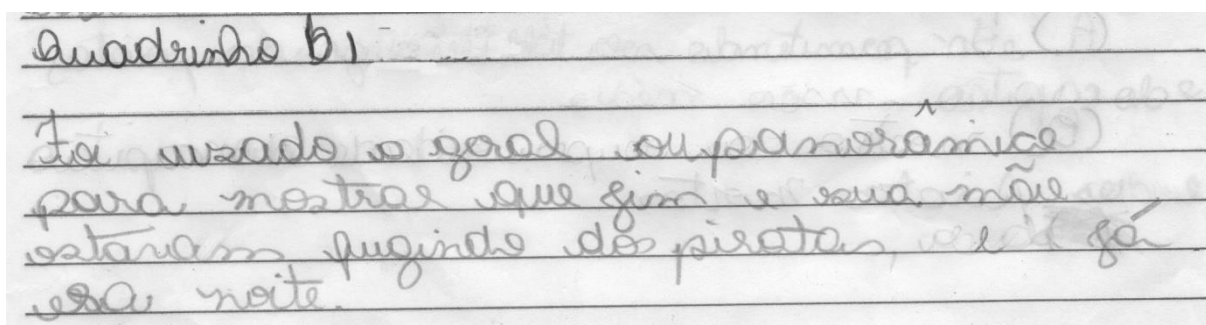 Quadrinho B1
Foi uzado o geral ou panorâmico
para mostrar que Jim e sua mãe
estavam fugindo dos piratas, e já
era noite.